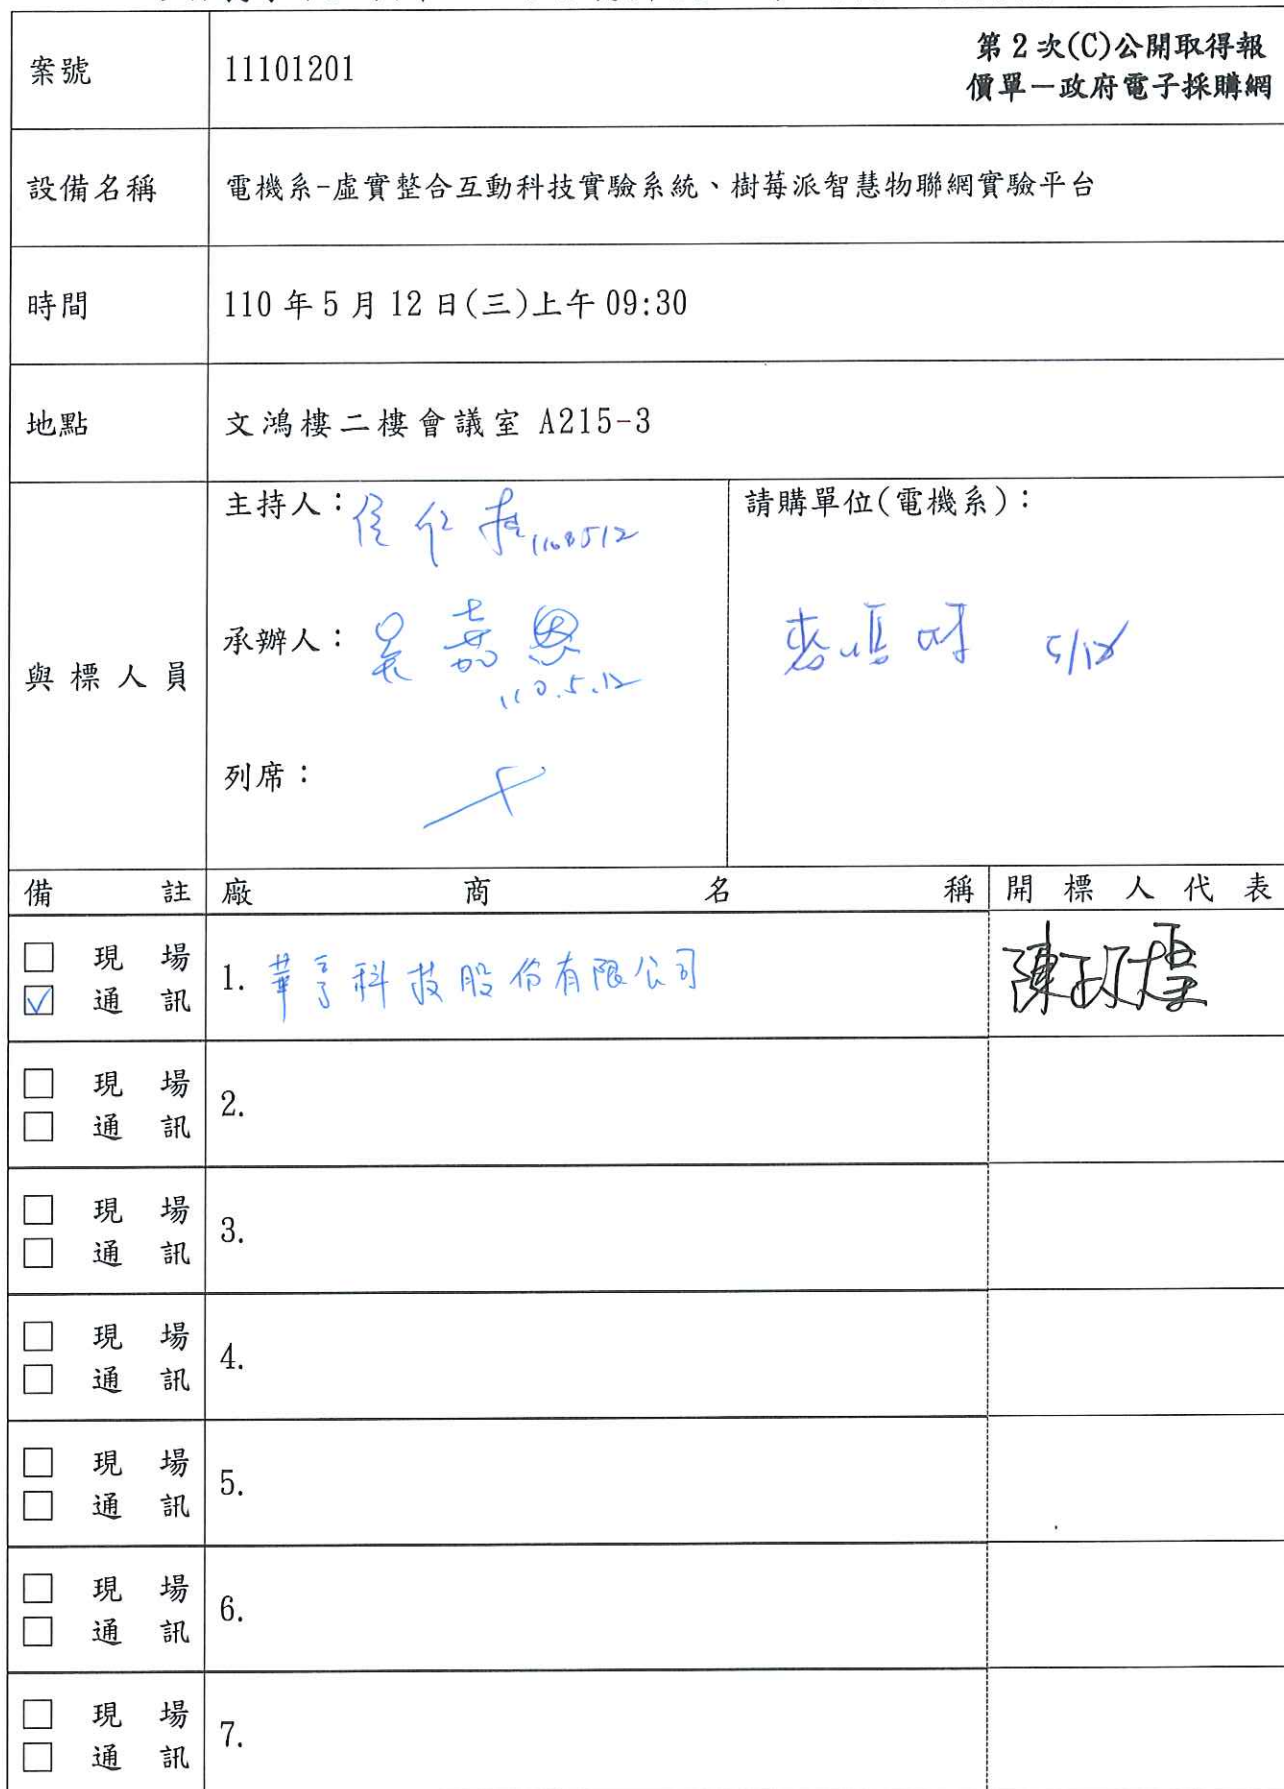 案號 11101201 第2次(C)公開取得報
價單－政府電子採購網
設備名稱 電機系-虛實整合互動科技實驗系統、樹莓派智慧物聯網實驗平台
時間 110年5月12日(三)上午09:30
地點 文鴻樓二樓會議室 A215-3
與標人員
主持人： 1100512
承辦人：吳嘉恩
110.5.12
列席：
請購單位(電機系)：
5/12
備註 廠商名稱 開標人代表
□ 現場
☑ 通訊
1. 華亨科技股份有限公司
陳政煒
□ 現場
□ 通訊
2.
□ 現場
□ 通訊
3.
□ 現場
□ 通訊
4.
□ 現場
□ 通訊
5.
□ 現場
□ 通訊
6.
□ 現場
□ 通訊
7.